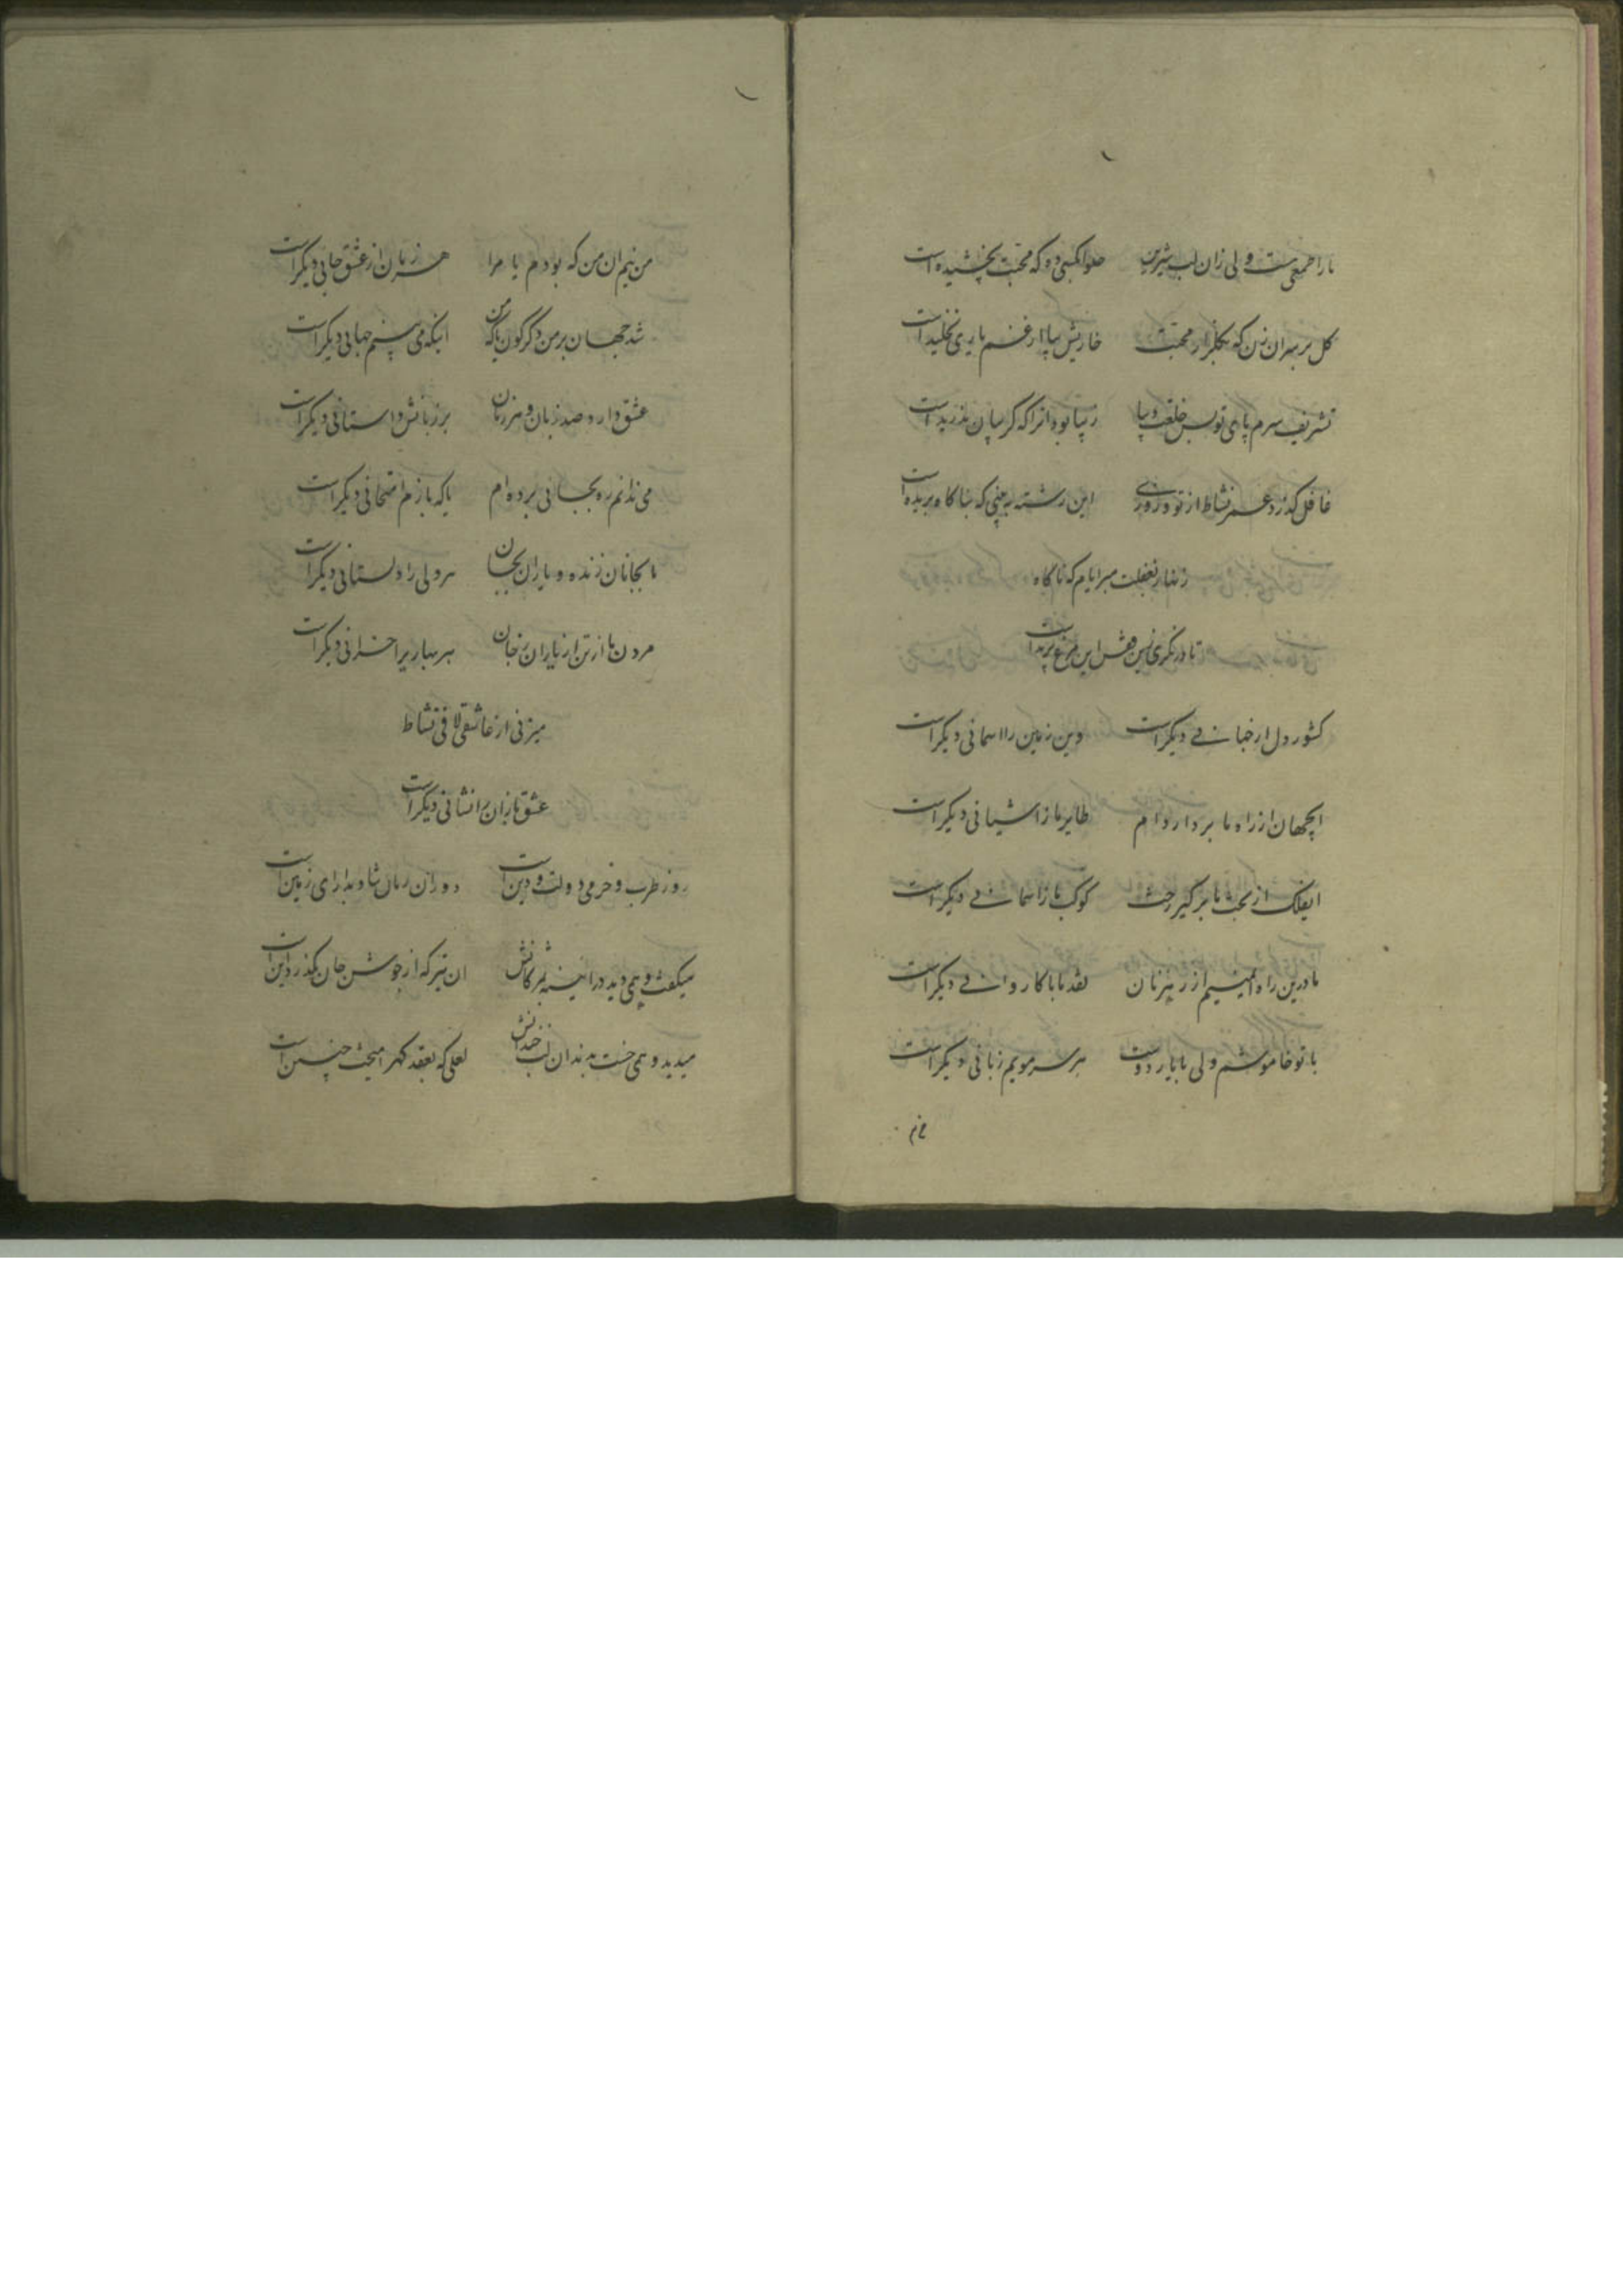 ما را طمعی هست ولی زان لب شیرین حلوا بکسی ده که محبت نچشیده است
کل بر سر ان زن که بکلزار محبت خاریش بپا از غم یاری نخلیده است
تشریف سرم پای تو بس خلعت زیبا زیبا بود انرا که کریبان ندریده است
غافل کذرد عمر نشاط از تو و روزی این رشته به بینی که بناکاه بریده است
زنهار بغفلت مبر ایام که ناکاه
تا درنکری زین قفس این مرغ پریده است
کشور دل را خبانی دیکر است وین زمین را اسمانی دیکر است
ایجهان از راه ما بردار دام طایر ما ز اشیانی دیکر است
ایفلک از بخت ما برکیر رخت کوکب ما ز اسمانی دیکر است
ما درین راه ایمنیم از رهزنان نقد ما با کاروانی دیکر است
با تو خاموشم ولی با یاد دوست هر سر مویم زبانی دیکر است
من نیم ان من که بودم یا مرا هر زمان از عشق جانی دیکر است
شد جهان بر من دکرکون یا که من اینکه می بینم جهانی دیکر است
عشق دارد صد زبان و هر زمان بر زبانش داستانی دیکر است
می ندانم ره بجانی برده ام یا که بازم امتحانی دیکر است
ما بجانان زنده و یاران بجان هر دلی را دلستانی دیکر است
مردن ما از تن از یاران ز جان هر بهاریرا خزانی دیکر است
میزنی از عاشقی لافی نشاط
عشقبازان را نشانی دیکر است
روز طرب و خرمی دولت و دین است دوران زمان شاد بدارای زمین است
میکفت و همی دید در ائینه بمژکانش ان تیر که از جوشن جان بکذرد این است
میدید و همی خست بدندان لب خندانش لعلی که بعقد کهر امیخت چنین است